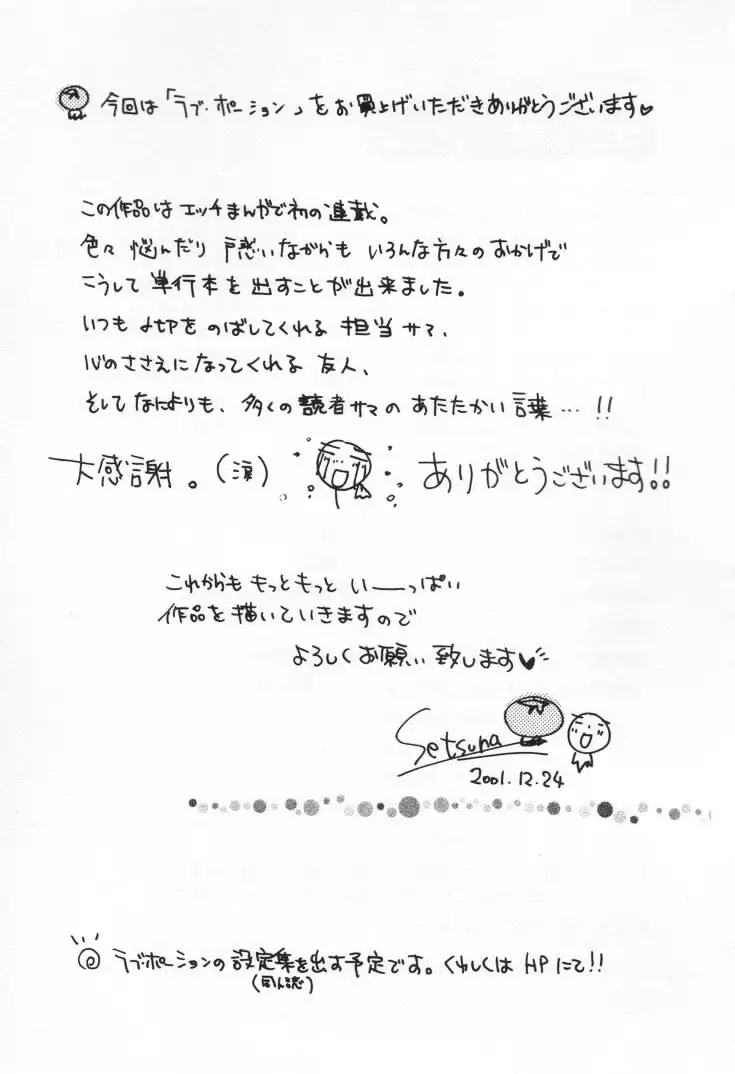 今回は「ラブ・ポーション」をお買上げいただきありがとうございます♥
この作品はエッチまんがで初の連載。
色々 悩んだり 戸惑いながらも いろんな方々のおかげで
こうして 単行本を 出すことが出来ました。
いつも 〆切を のばしてくれる 担当サマ、
心のささえになってくれる 友人、
そしてなによりも、多くの読者サマの あたたかい言葉…!!
大感謝。(涙) ありがとうございます!!
これからも もっともっと い――っぱい
作品を描いていきますので
よろしくお願い致します♥
Setsuna
2001.12.24
ラブ・ポーションの 設定集を出す予定です。くわしくは HPにて!!
(同人誌)